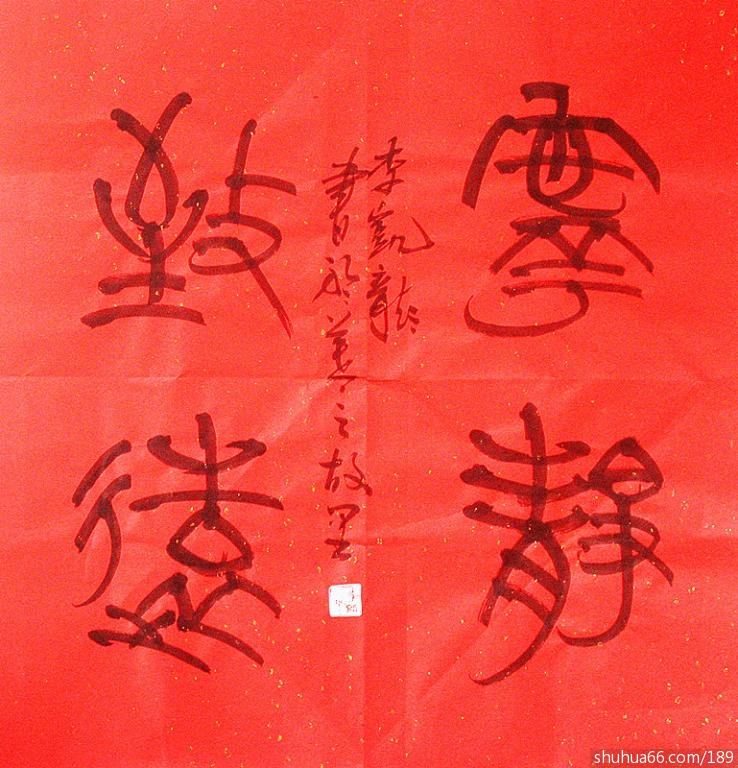 寧靜
致遠
李凱龍
書於羲之故里
shuhua66.com/189